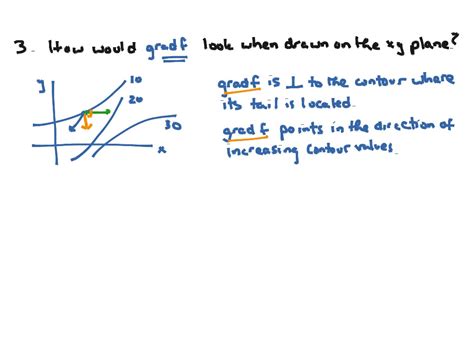 3. How would grad f look when drawn on the xy plane?
y
10
20
30
x
grad f is ⊥ to the contour where
its tail is located.
grad f points in the direction of
increasing contour values.